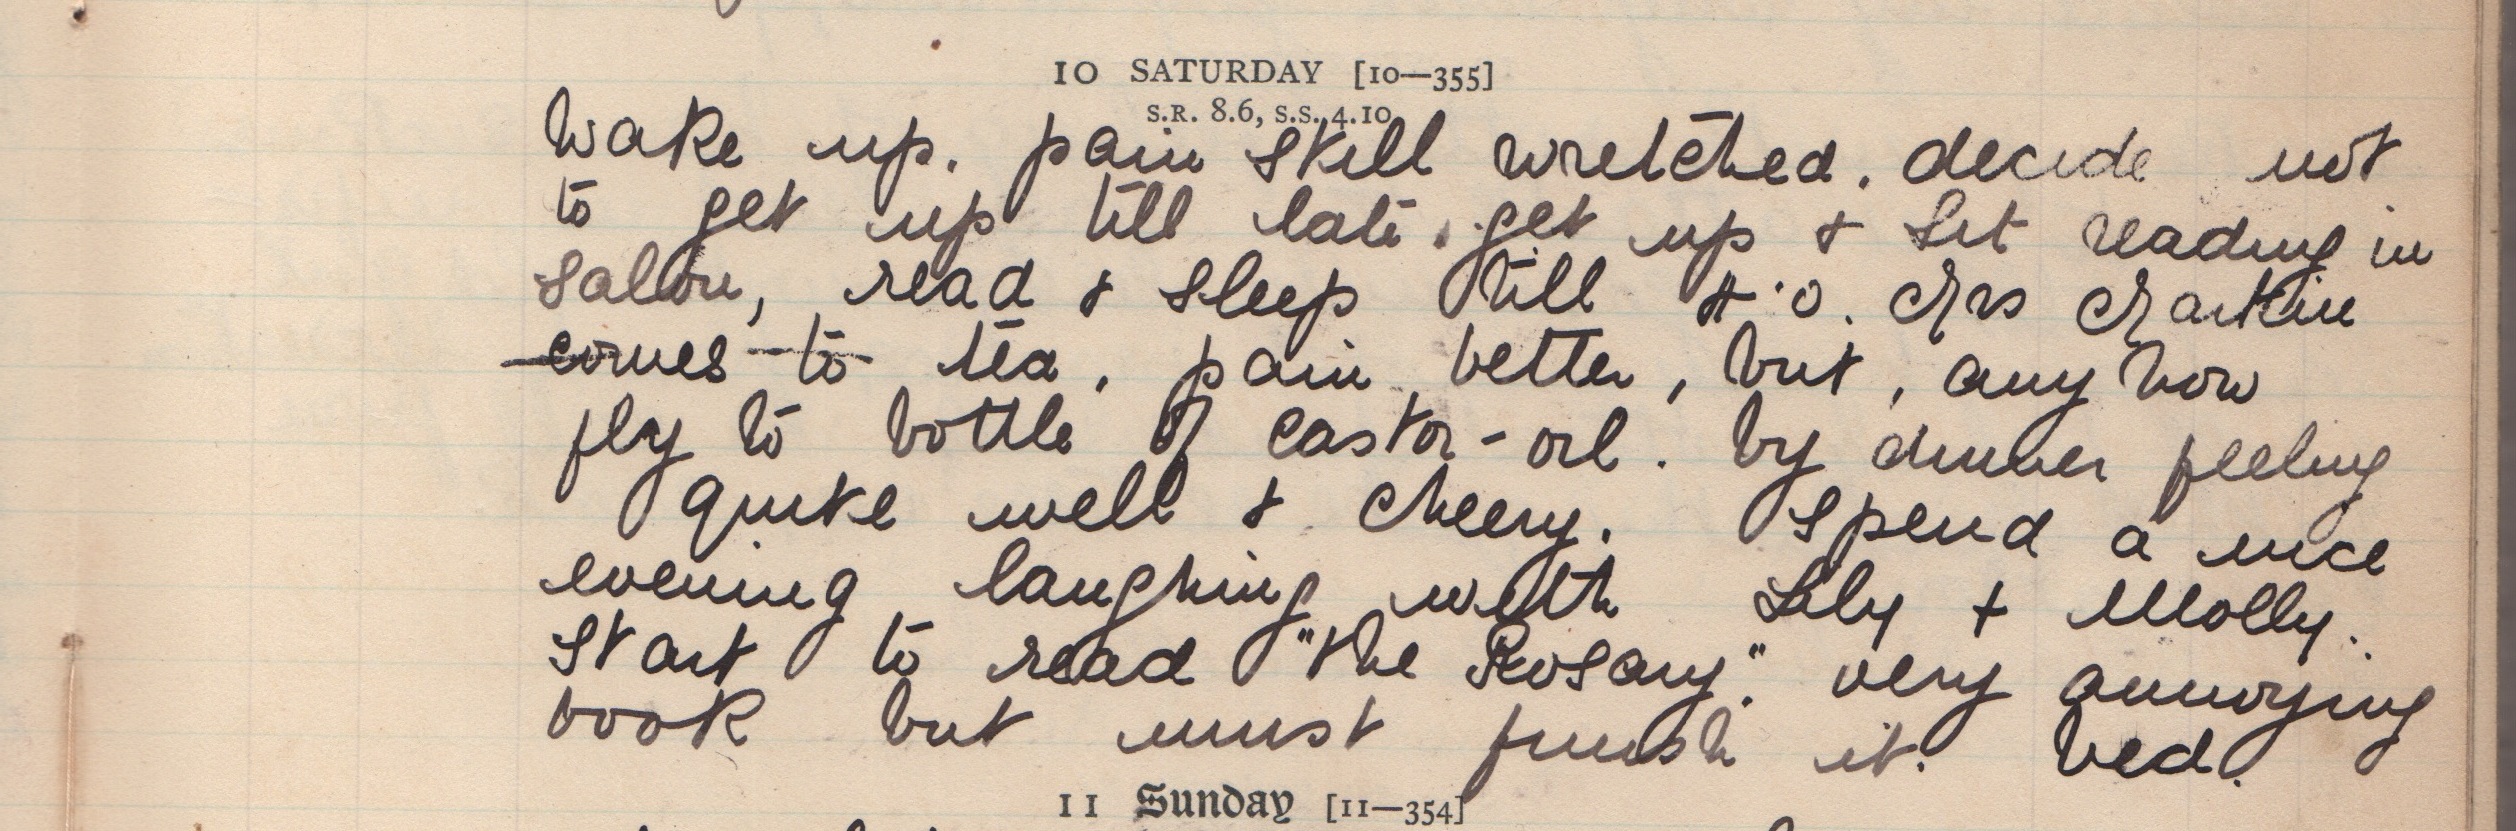 10 SATURDAY [10—355]
S.R. 8.6, S.S. 4.10
Wake up. pain still wretched. decide not
to get up till late. get up & sit reading in
salon, read & sleep till 4.0. Mrs Martin
comes to tea. pain better, but, any how
fly to bottle of castor-oil. by dinner feeling
quite well & cheery. Spend a nice
evening laughing with Lily & Molly.
Start to read "the Rosary". very annoying
book but must finish it. bed.
11 Sunday [11—354]